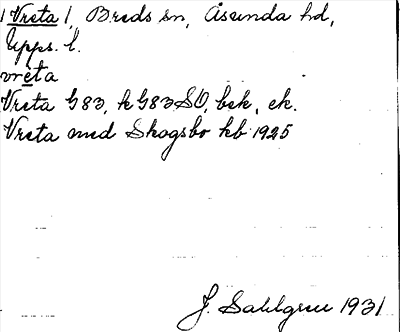 1 Vreta /, Breds sn, Åsunda hd,
Upps. l.
vreta
Vreta G83, kG83SO, bek, ek.
Vreta med Skogsbo kb 1925
J. Sahlgren 1931